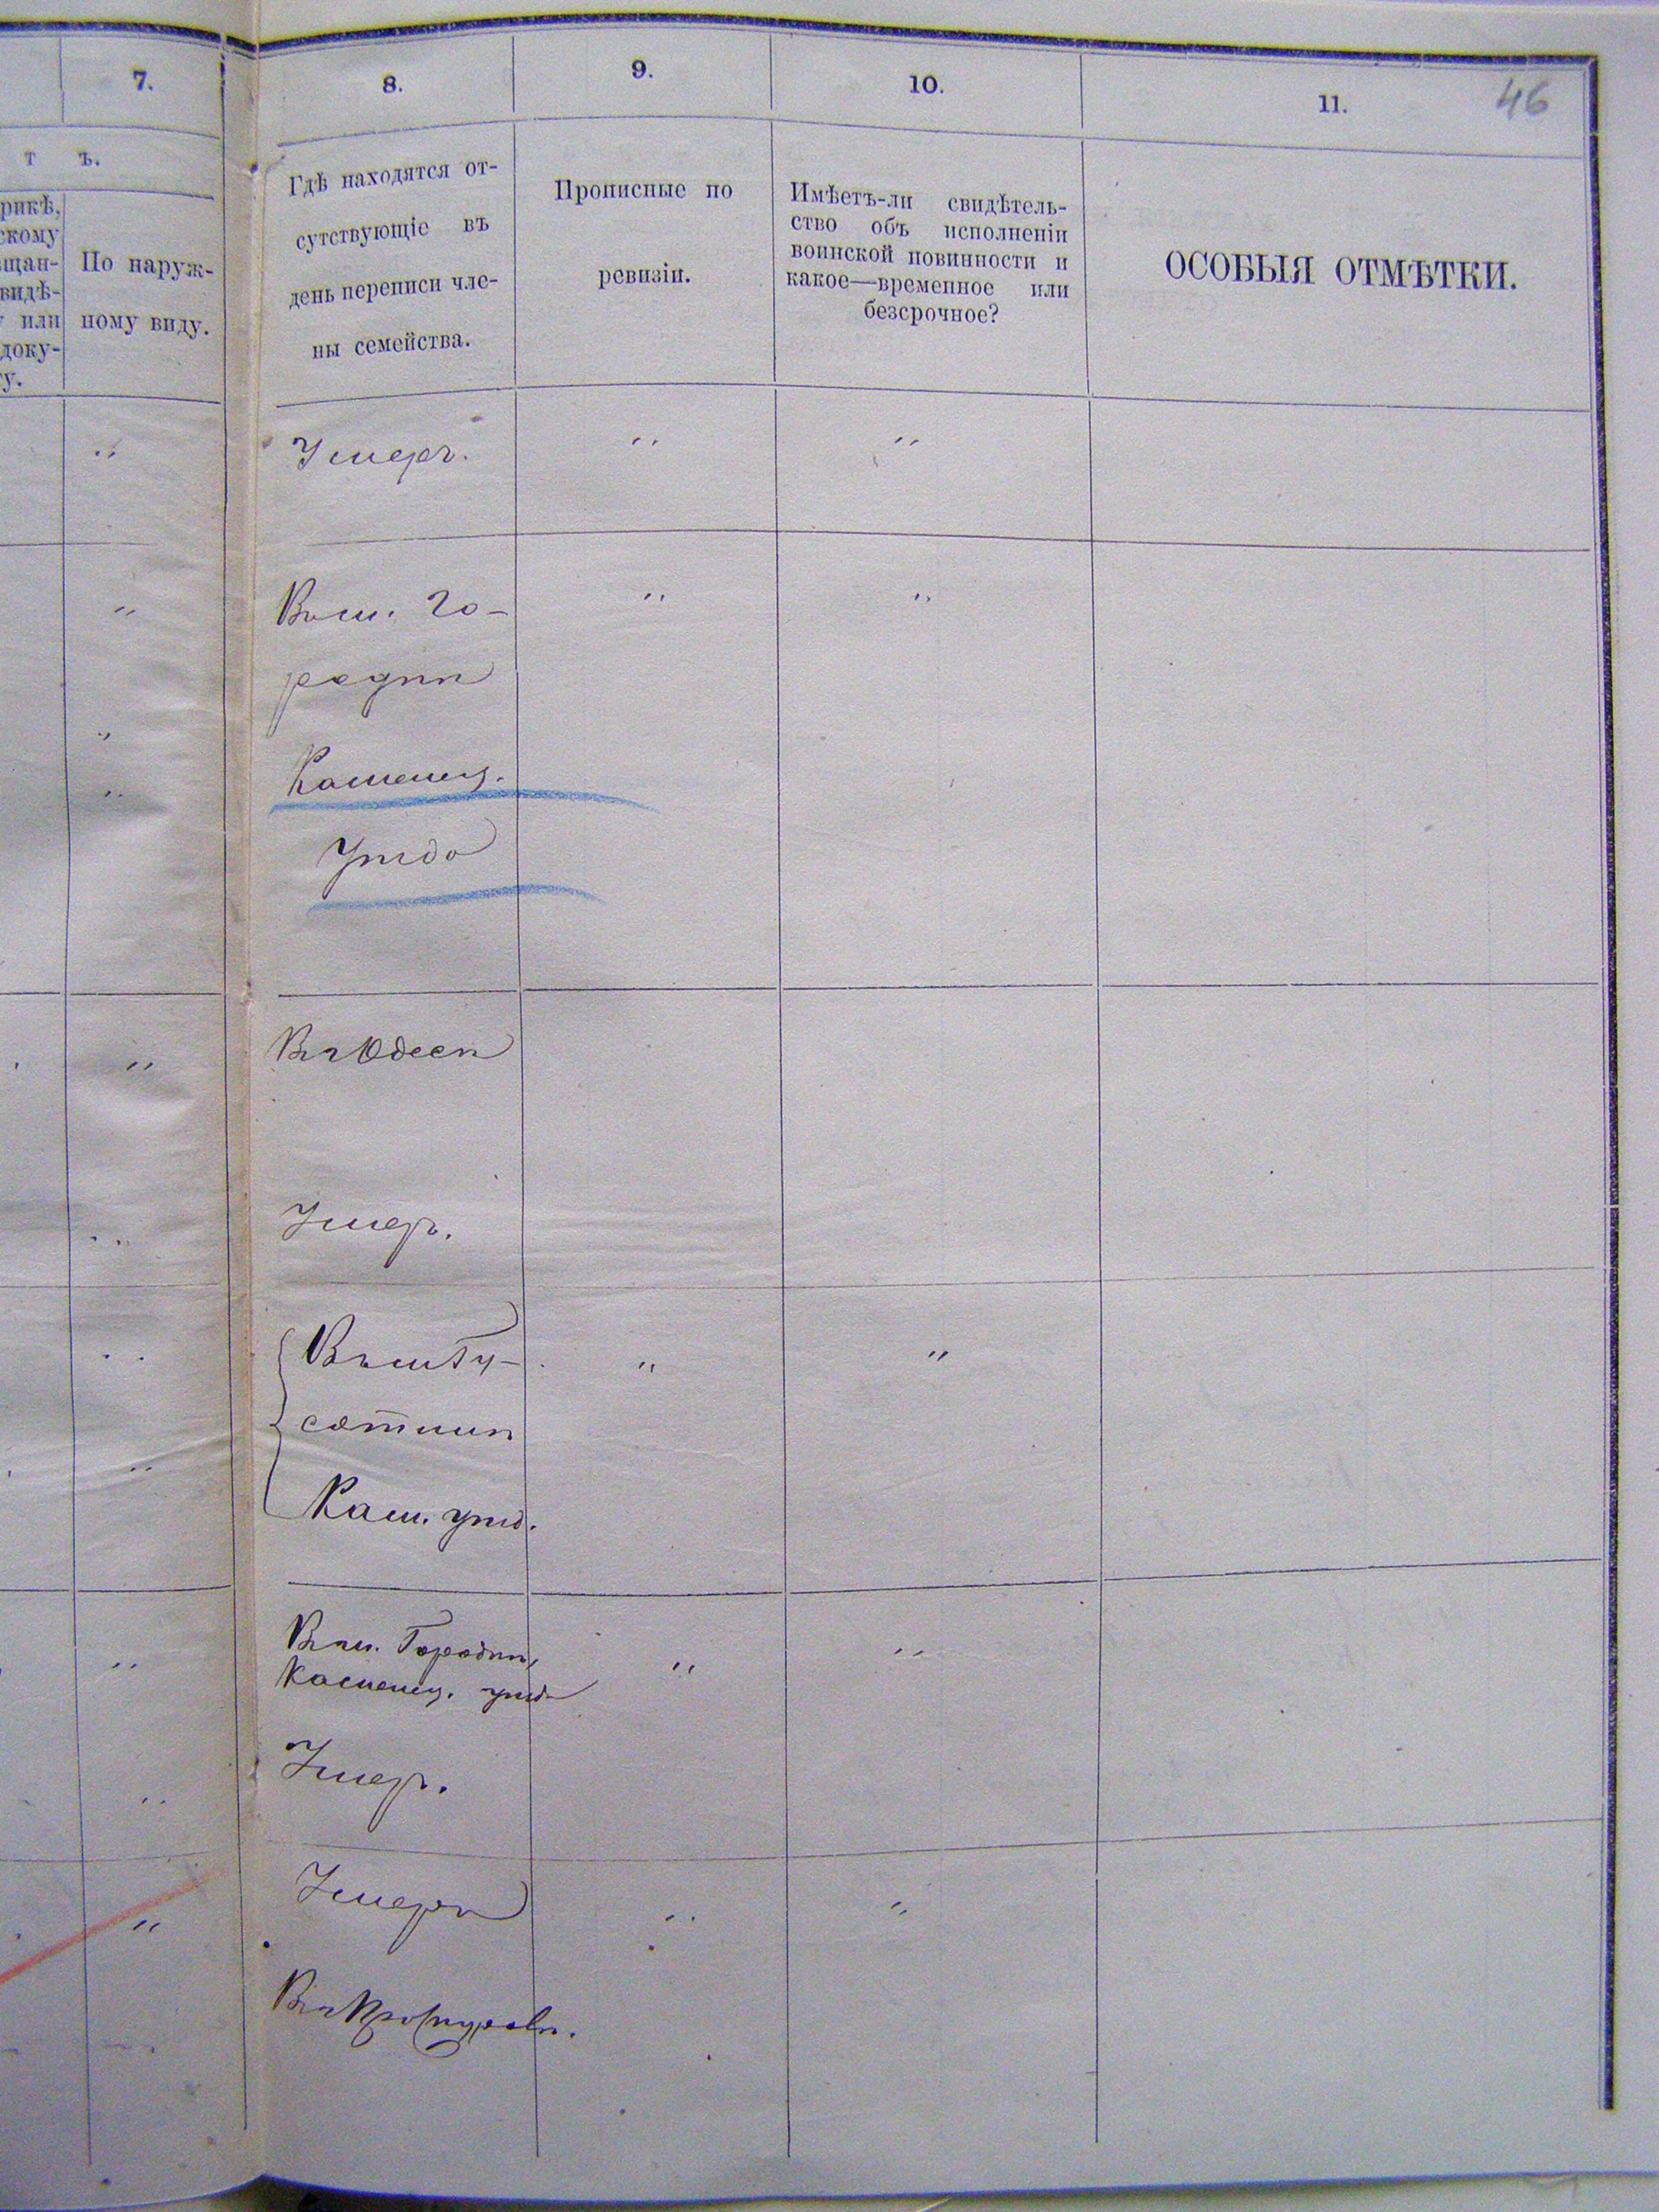 7.
8.
9.
10.
11.
46
т ъ.
рикѣ,
скому
щан-
видѣ-
или
доку-
у.
По наруж-
ному виду.
Гдѣ находятся от-
сутствующіе въ
день переписи чле-
ны семейства.
Прописные по
ревизіи.
Имѣетъ-ли свидѣтель-
ство объ исполненіи
воинской повинности и
какое—временное или
безсрочное?
ОСОБЫЯ ОТМѢТКИ.
" Умеръ. " "
" Въ м. Го- " "
родкѣ
" Каменец.
" Уѣзда
" Въ Одессѣ
" Умеръ.
" Въ м. " "
" Кам. уѣзд.
" Въ м. Городкѣ, " "
Каменец. уѣзда
" Умеръ.
" Умеръ " "
Въ Проскуровѣ.